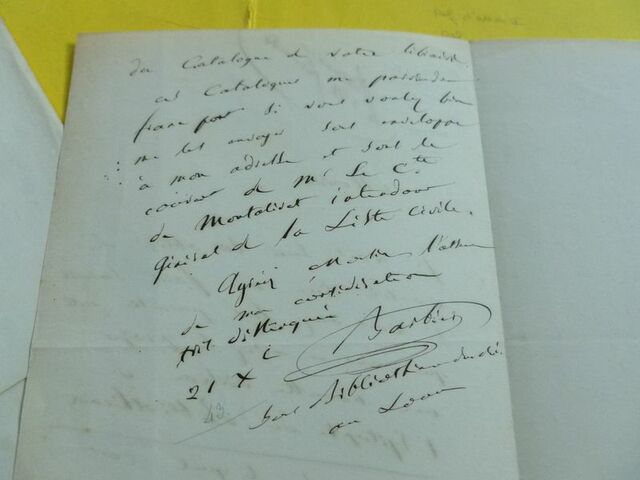 du Catalogue de votre librairie.
ces Catalogues me parviendront
franc port si vous voulez bien
me les envoyer sous enveloppe
à mon adresse et sous le
couvert de Mr Le Cte
de Montalivet intendant
Général de la Liste Civile.
Agréez Monsieur l'assurance
de ma considération
très distinguée
Barbier
21 Xe
43.
Bibliothécaire du Roi
au Louvre